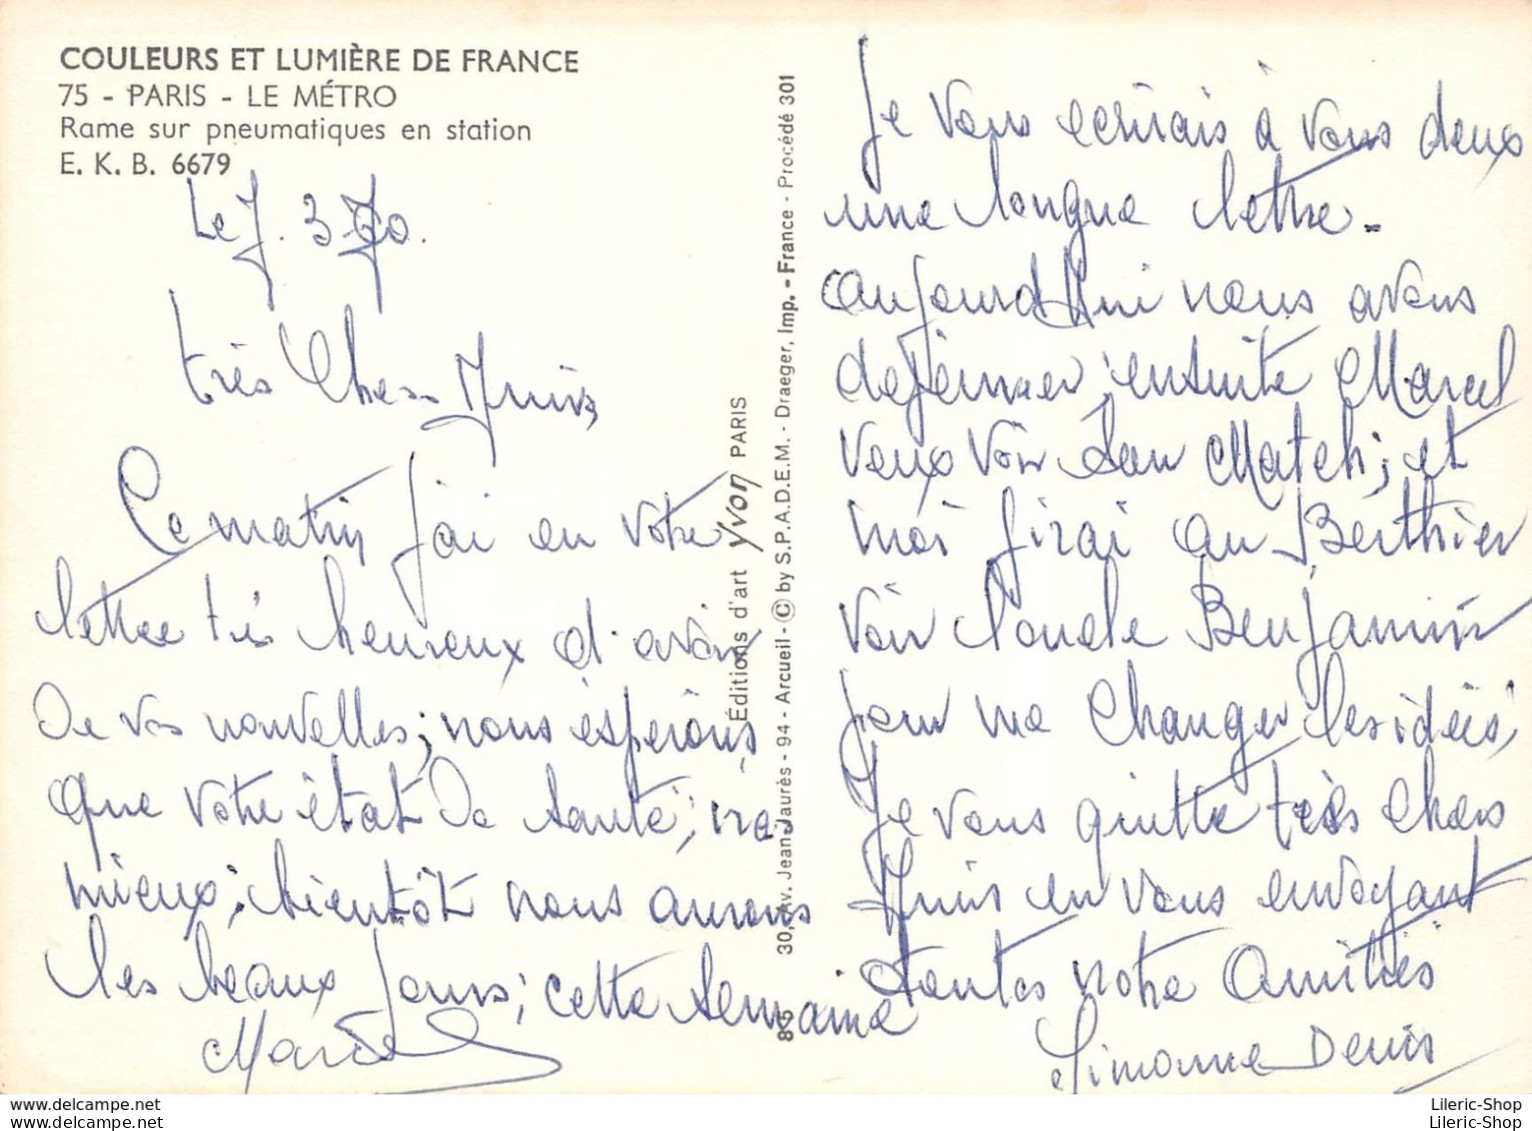 COULEURS ET LUMIÈRE DE FRANCE
75 - PARIS - LE MÉTRO
Rame sur pneumatiques en station
E. K. B. 6679
Le 7. 3-70.
très Chers Amis,
Ce matin j'ai eu votre
lettre très heureux d'avoir
De vos nouvelles; nous éspérons
que votre état De Santé, ira
mieux; bientôt nous aurons
les beaux jours; cette Semaine
Marcel
Éditions d'art Yvon PARIS
8-5 30, Av. Jean-Jaurès - 94 - Arcueil - © by S.P.A.D.E.M. - Draeger, Imp. - France - Procédé 301
Je vous ecrirais à vous deux
une longue lettre -
aujourd'hui nous avons
dejeuner, ensuite Marcel
veux voir Son Match; et
moi j'irai au Berthier
voir l'oncle Benjamin
pour me changer les idéés,
Je vous quitte très chers
Amis en vous envoyant
toutes notre Amitiés
Simonne Denis
Lileric-Shop
Lileric-Shop